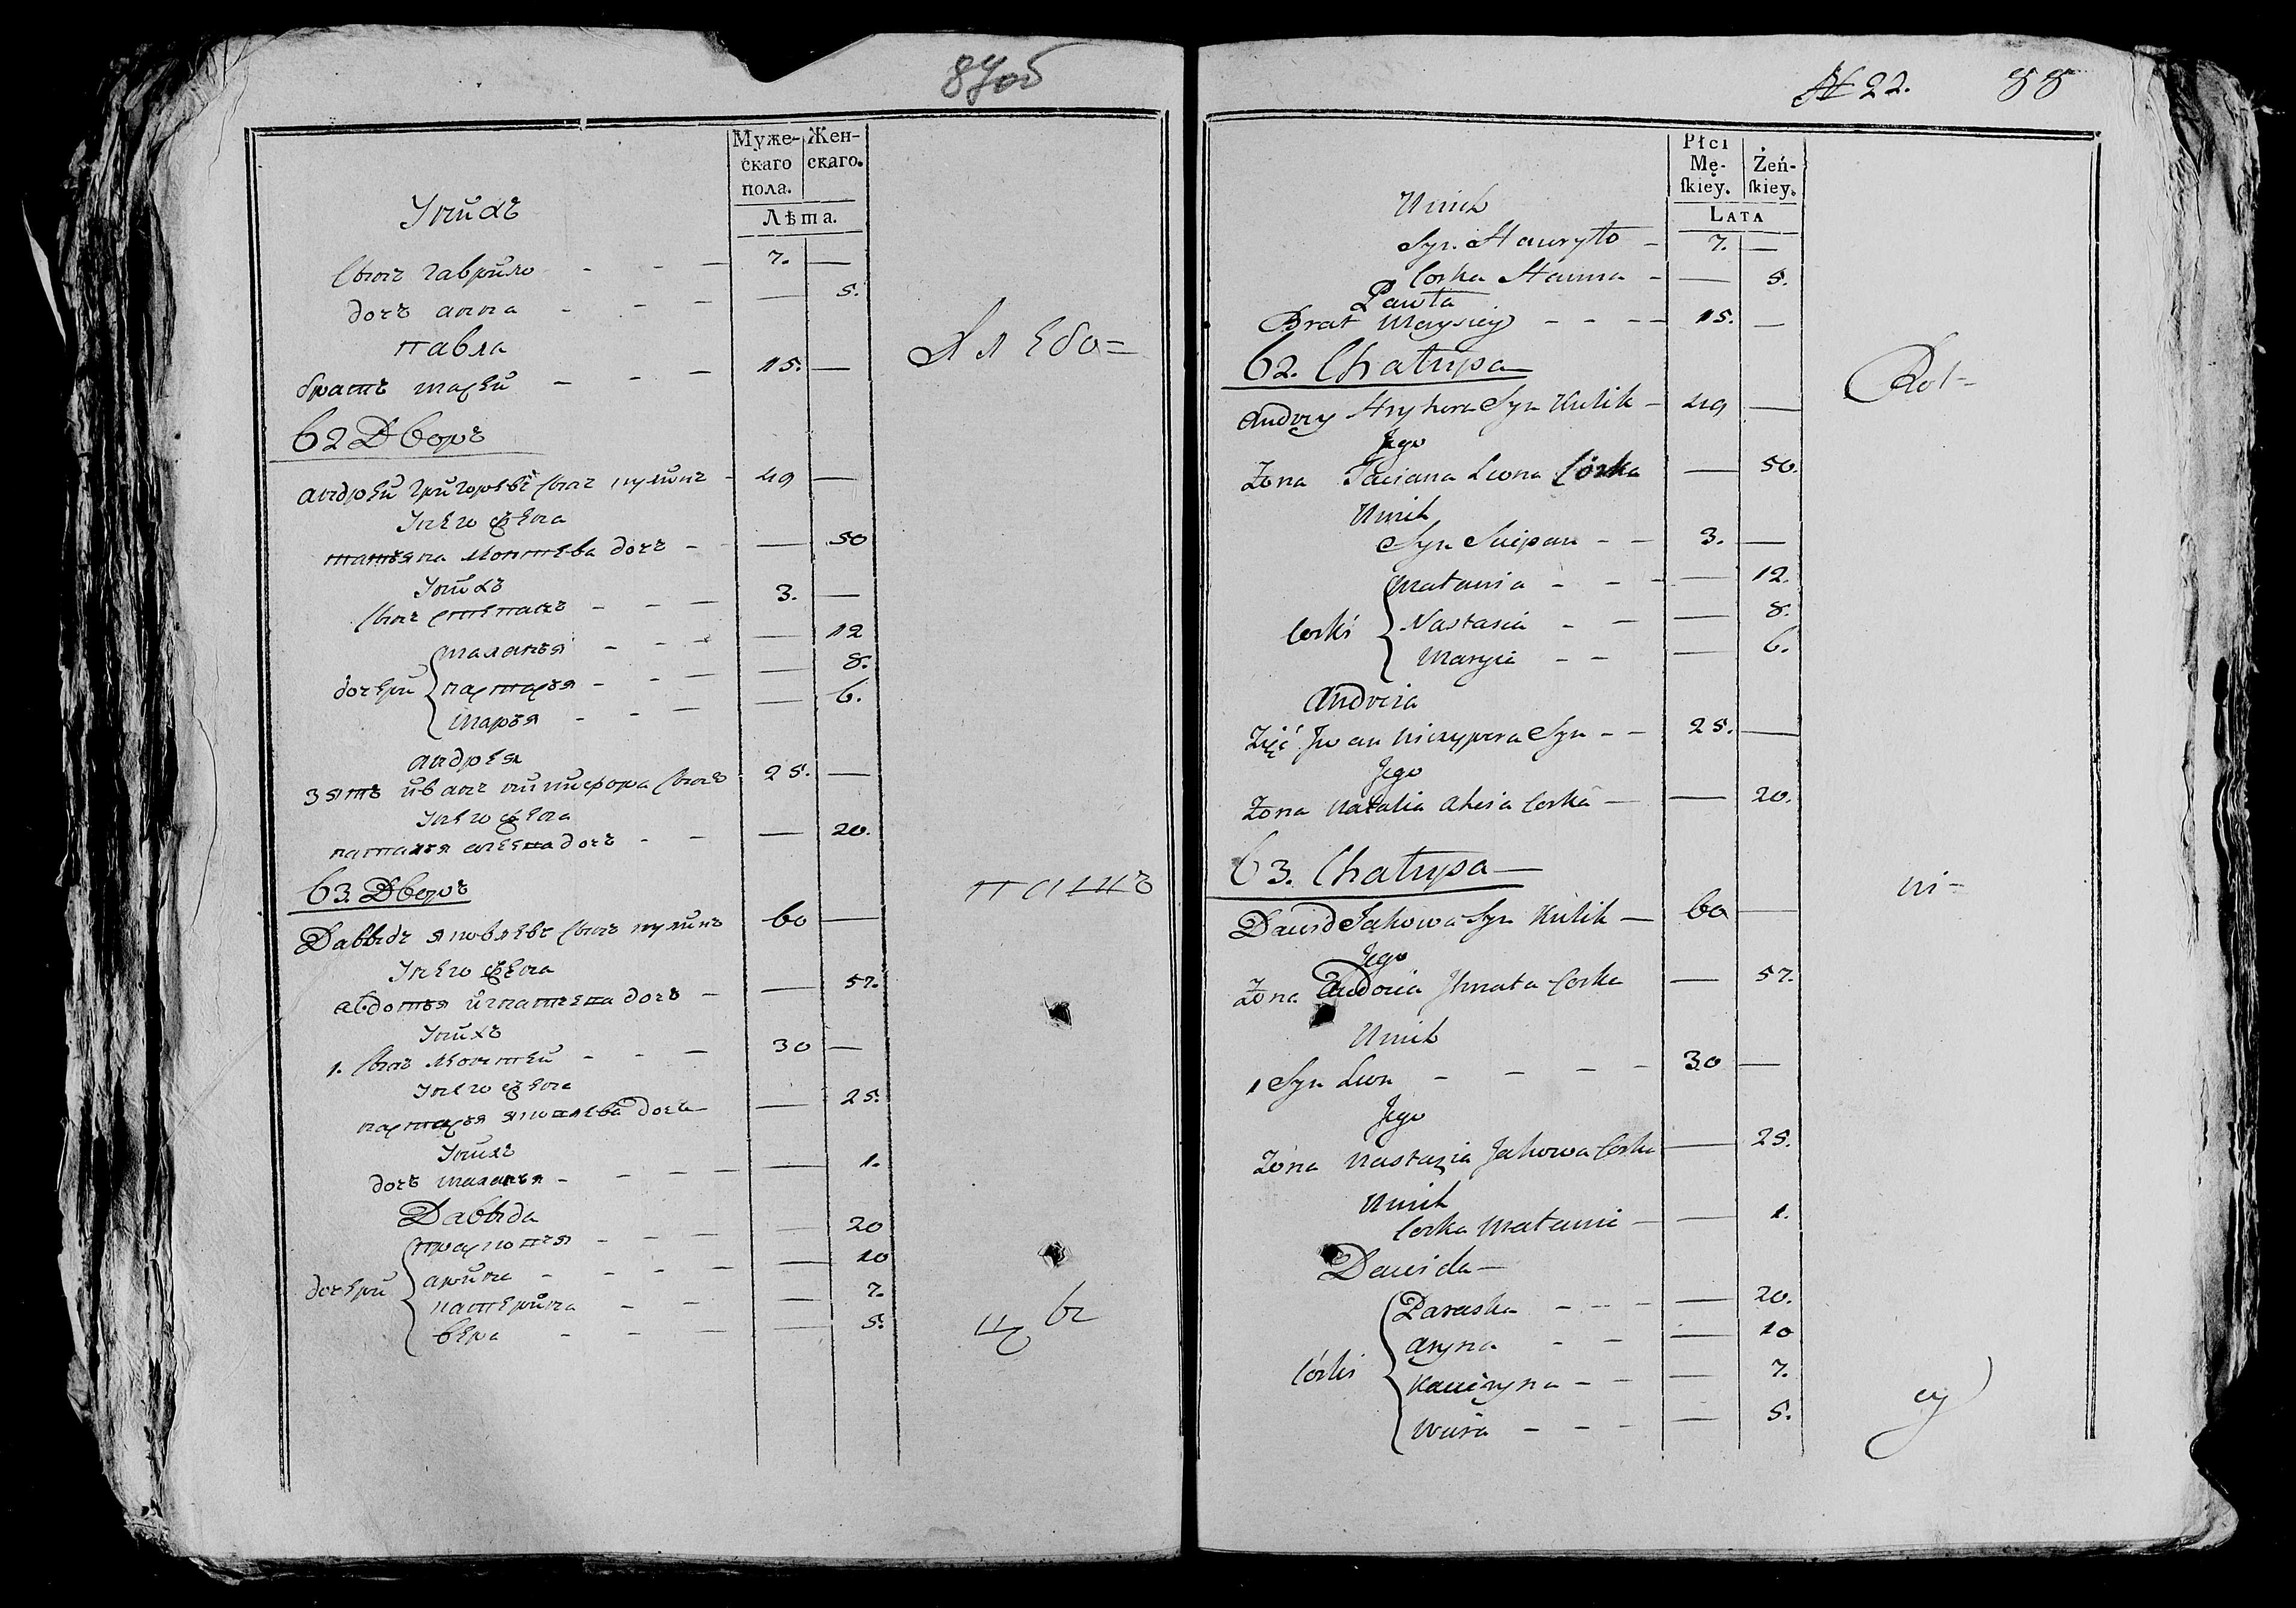 87об
Муже- Жен-
скаго скаго.
пола.
Лѣта.
Унихъ
Сынъ гаврило - - - 7. —
дочь анна - - - — 5.
павла
братъ мосей - - - 15. —
62 Дворъ
андрей григорьевъ Сынъ куликъ - 49 —
Унего жена
татьяна леонтьева дочь - — 50
Унихъ
Сынъ степанъ - - - 3. —
маланья - - - — 12
дочери настасья - - - — 8.
марья - - - — 6.
андрея
зять иванъ никифора Сынъ 25. —
Унего жена
наталья дочь - - — 20.
63. Дворъ
Давыдъ яковлевъ Сынъ куликъ 60 —
Унего жена
авдотья игнатьева дочь - — 57.
Унихъ
1. Сынъ леонтей - - - 30 —
Унего жена
настасья яковлева дочь — 25.
Унихъ
дочь маланья - - - — 1.
Давыда
прасковья - - - — 20
дочери арина - - - - — 10
катерина - - — 7.
вера - - - — 5.
N 22. 88
Płci
Mę- Żeń-
skiey. skiey.
LATA
Unich
Syn Hawryło - 7. —
Corka Hanna - — 5.
Pawła
Brat Maysiey - - - - 15. —
62. Chałupa
Andrey Hryhora Syn Kulik - 49 —
Jego
Żona Taciana Leona Córka — 50.
Unich
Syn Sciepan - - 3. —
Małania - - - — 12.
Corki Nastasia - - — 8.
Maryia - - — 6.
Andreia
Zięć Jwan Niczypora Syn - - 25. —
Jego
Żona Natalia Corka — — 20.
63. Chałupa —
Dawid Jakowa Syn Kulik — 60 —
Jego
Żona Jhnata Corka — 57.
Unich
1 Syn Leon - - - - 30 —
Jego
Żona Nastazia Jakowa Corka — 25.
Unich
Corka Małania - — 1.
Dawida —
Paraska - - - - — 20.
Aryna - - — 10
Córki Kacieryna - - — 7.
Wiera - - - — 5.